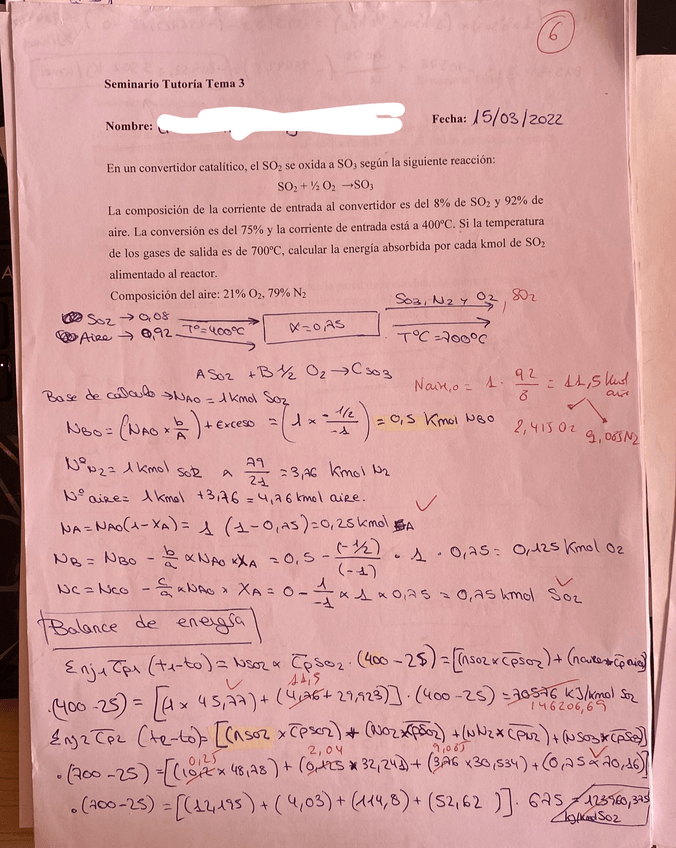 6
Seminario Tutoría Tema 3
Nombre: Fecha: 15/03/2022
En un convertidor catalítico, el SO₂ se oxida a SO₃ según la siguiente reacción:
SO₂ + ½ O₂ →SO₃
La composición de la corriente de entrada al convertidor es del 8% de SO₂ y 92% de
aire. La conversión es del 75% y la corriente de entrada está a 400ºC. Si la temperatura
de los gases de salida es de 700ºC, calcular la energía absorbida por cada kmol de SO₂
alimentado al reactor.
Composición del aire: 21% O₂, 79% N₂
SO₂ → 0,08 Tº=400ºC X=0,75 SO₃, N₂ y O₂, SO₂
Aire → 0,92 TºC=700ºC
A SO₂ + B ½ O₂ → C SO₃
Base de calculo → NAO = 1 kmol SO₂ Naire,o = 1 · 92/8 = 11,5 kmol aire
NBO = (NAO × b/A) + Exceso = (1 × -1/2 / -1) = 0,5 Kmol NBO 2,415 O₂ 9,085 N₂
NºN₂ = 1 kmol SO₂ × 79/21 = 3,76 Kmol N₂
Nº aire = 1 kmol + 3,76 = 4,76 kmol aire.
NA = NAO(1-XA) = 1 (1-0,75) = 0,25 kmol A
NB = NBO - b/a × NAO × XA = 0,5 - (-1/2)/(-1) · 1 · 0,75 = 0,125 Kmol O₂
NC = NCO - c/a × NAO × XA = 0 - 1/-1 × 1 × 0,75 = 0,75 kmol SO₂
Balance de energía
Σnj₁ C̅p₁ (t₁-t₀) = NSO₂ × C̅pSO₂ · (400-25) = [(nSO₂ × C̅pSO₂) + (naire × C̅p aire)]
·(400-25) = [(1 × 45,77) + (4,76 × 29,923)] · (400-25) = 70576 KJ/kmol SO₂
11,5 146206,69
Σnj₂ C̅p₂ (t₂-t₀) = [(nSO₂ × C̅pSO₂) + (NO₂ × C̅pO₂) + (NN₂ × C̅pN₂) + (NSO₃ × C̅pSO₃)]
0,25 2,04 9,085
·(700-25) = [( × 48,78) + (0,125 × 32,241) + (3,76 × 30,534) + (0,75 × 70,16)]
·(700-25) = [(12,195) + (4,03) + (114,8) + (52,62)] · 675 = 123960,375
kJ/kmol SO₂